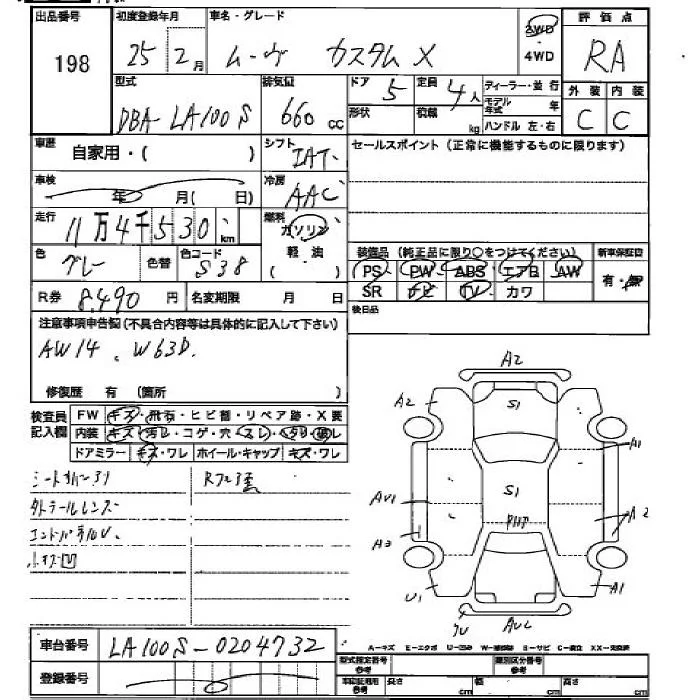 出品番号 初度登録年月 車名・グレード 2WD 評価点
198 25 2月 ムーヴ カスタム X ・4WD RA
型式 排気量 ドア 5 定員 4人 ディーラー・並 行 外装 内装
DBA- LA100S 660 cc 形状 積載 kg モデル年式 年 C C
ハンドル 左・右
車歴 自家用・( ) シフト IAT セールスポイント (正常に機能するものに限ります)
車検 年 月(日) 冷房 AAC
走行 11万4千530 km 燃料 ガソリン
色 グレー 色替 色コード S38 軽 油 ( )
装備品 (純正品に限り○をつけてください) 新車保証書
PS PW ABS エアB AW 有・無
SR ナビ TV カワ
R券 8,490 円 名変期限 月 日 後日品
注意事項申告欄(不具合内容等は具体的に記入して下さい)
AW14、W63D.
修復歴 有 (箇所 )
検査員記入欄 FW キズ・飛石・ヒビ割・リペア跡・X要
内装 キズ・汚レ・コゲ・穴・スレ・タリ・破レ
ドアミラー キズ・ワレ ホイール・キャップ キズ・ワレ
外テールレンズ
小キズ凹
A2
A2 S1
A1
AU1 S1
A2
A3
U1 A1
AU2
車台番号 LA100S-0204732
登録番号
A-キズ
型式指定番号 参考 類別区分番号 参考
長さ cm 幅 cm 高さ cm